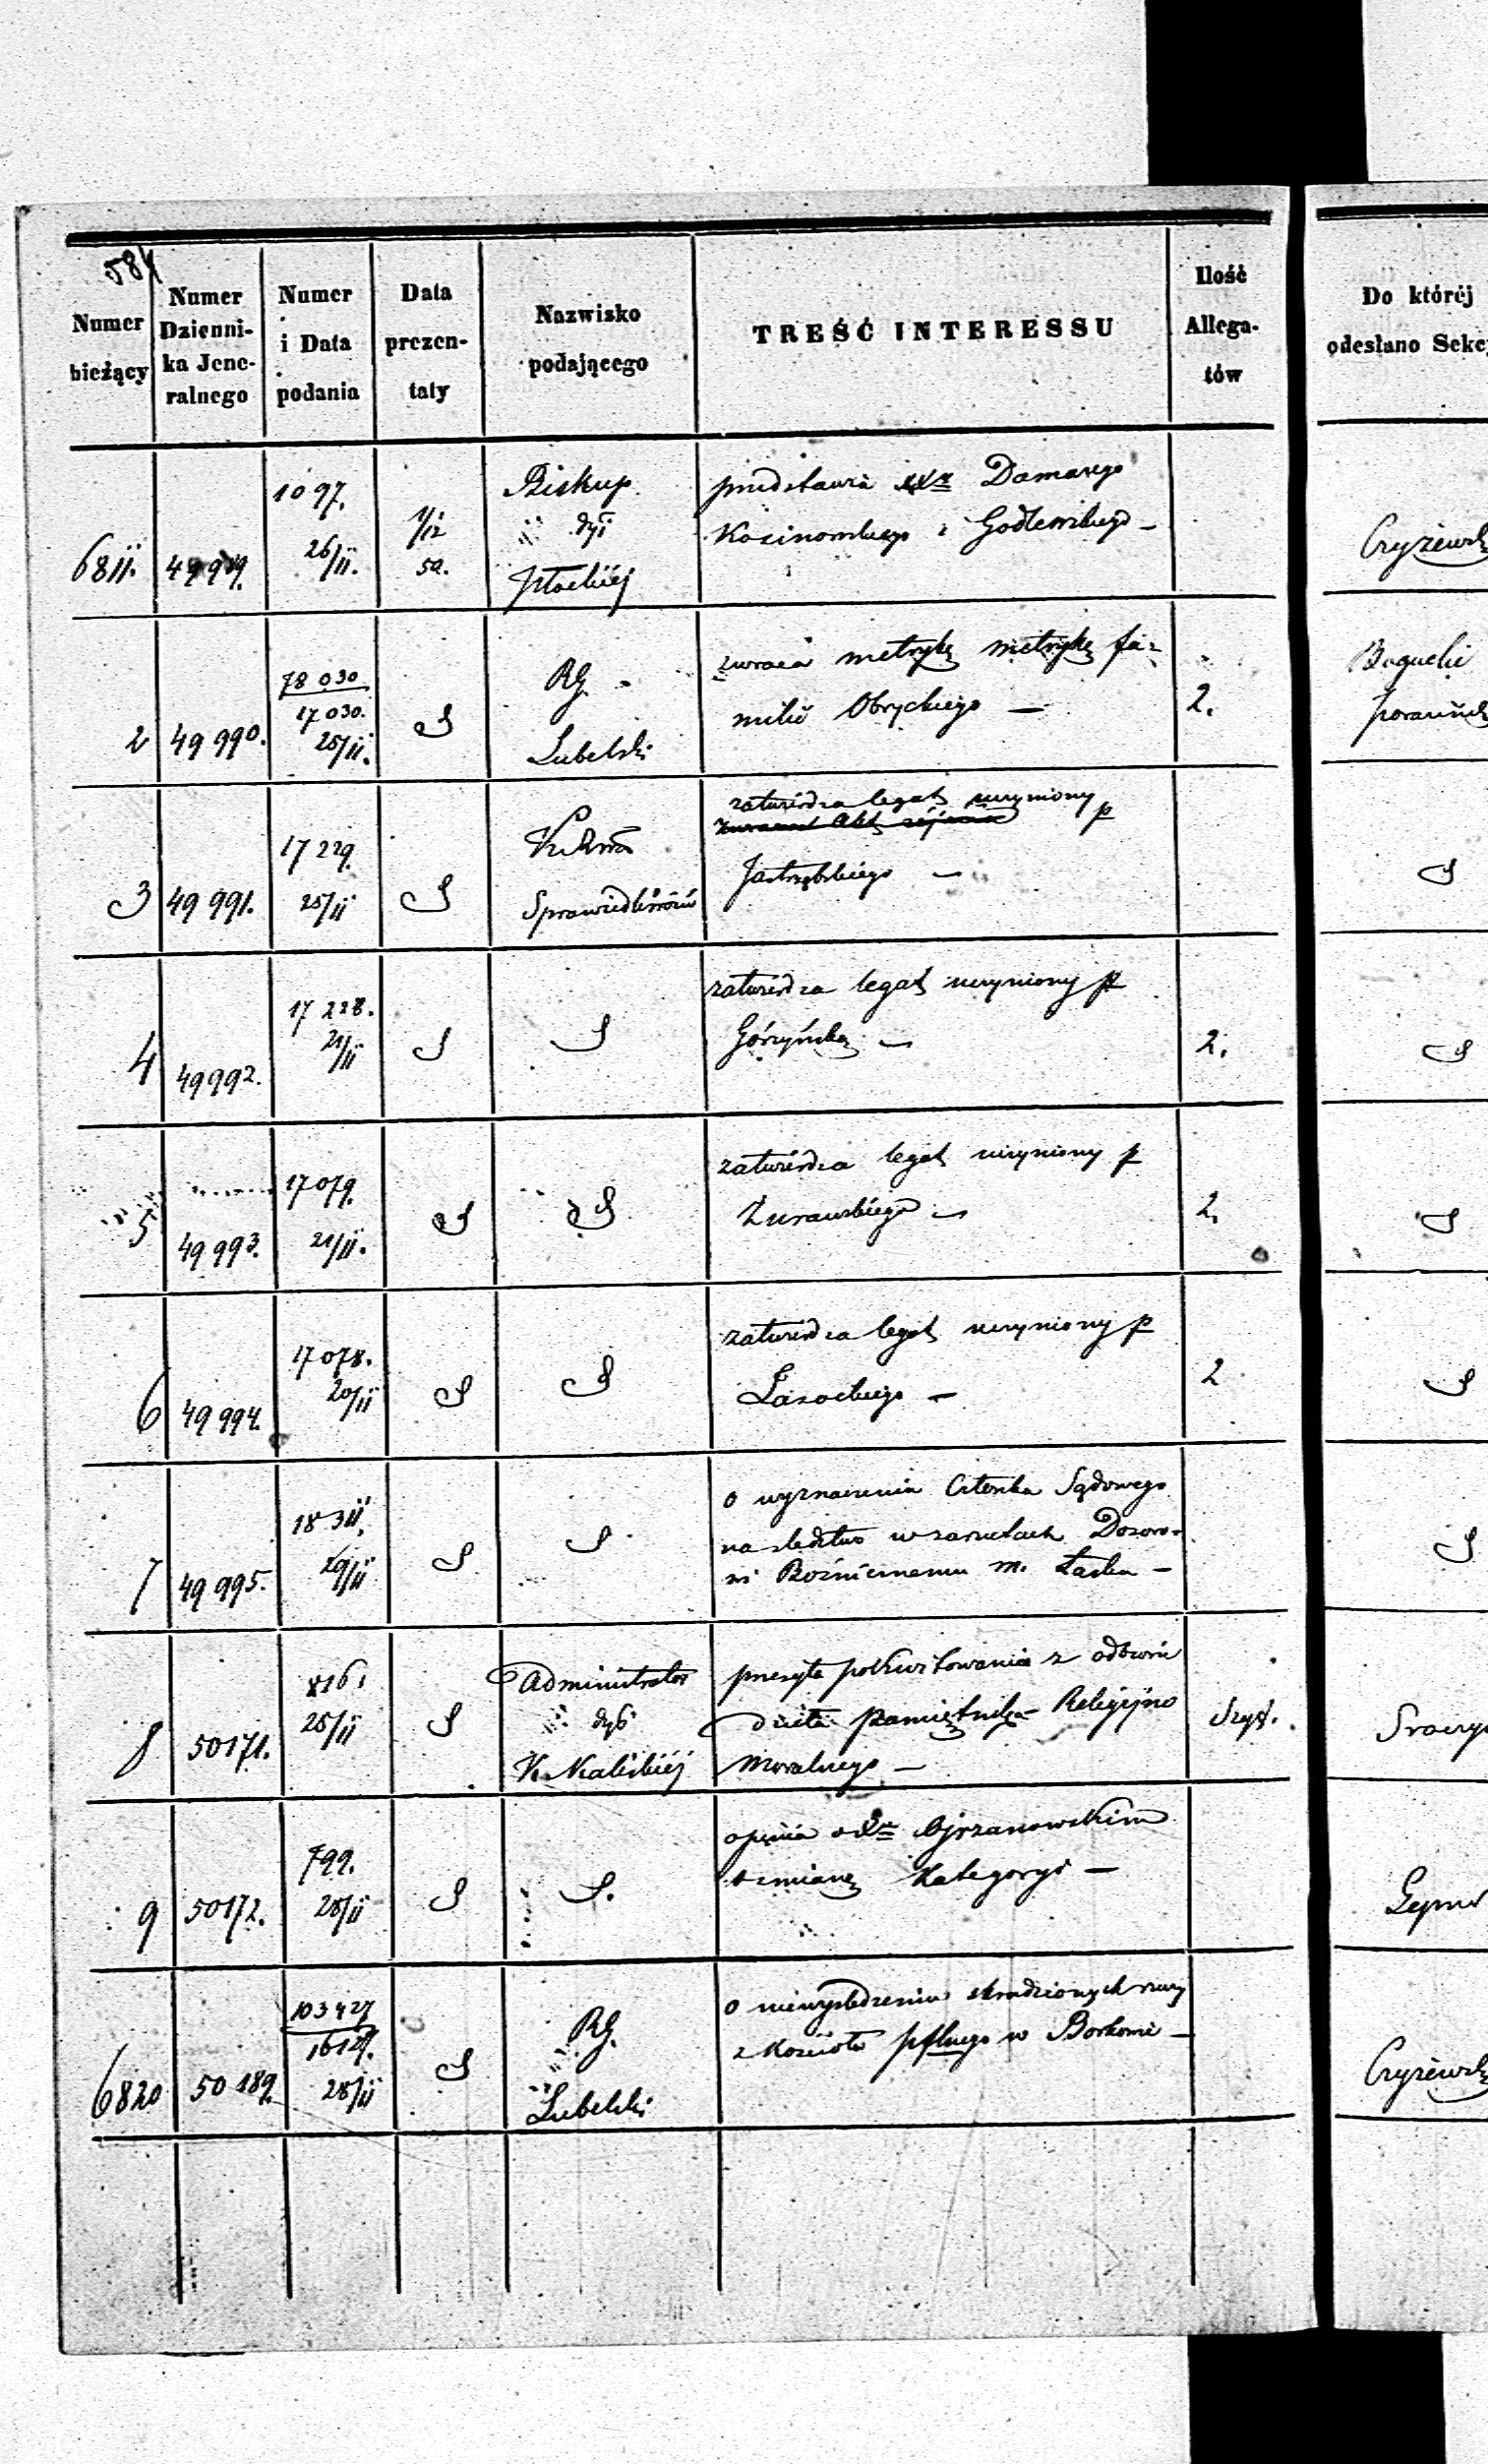 584
Numer bieżący
Numer Dzienni-ka Jene-ralnego
Numer i Data podania
Data prezen-taty
Nazwisko podającego
TREŚĆ INTERESSU
Ilość Allega-tów
Do któréj
odesłano Sekcy
6811. 49989. 1097. 26/11. 1/12 50. Biskup dyi Płockiéj
przedstawia XXzy Damazego
Kosinowskiego i Godlewskiego —
Czyżewsk
2 49990. 78030 17030. 25/11. RG. Lubelski
zwraca metrykę metrykę fa-
milii Obryckiego —
2.
3 49991. 17229. 25/11 Sprawiedliwości
zatwierdza legat uczyniony p
Jastrzębskiego —
4 49992. 17228. 21/11
zatwierdza legat uczyniony p
Górzyńską —
2.
5 49993. 17079. 21/11.
zatwierdza legat uczyniony p
Żurawskiego —
2.
6 49994. 17078. 20/11
zatwierdza legat uczyniony p
Lasockiego —
2
7 49995. 18311. 29/11
o wyznaczenia Członka Sądowego
na śledztwo w zarzutach Dozoro-
wi Bożnicznemu m. Łaska —
8 50171. 816. 25/11 Administrator dyi K. Kaliskiéj
przesyła pokwitowania z odbioru
dzieła Pamiętnika Religijno
Moralnego —
Szyt.
9 50172. 799. 28/11
opinia o Xzu Ojrzanowskim
o zmianę Kategoryi —
6820 50189. 103427 16129. 28/11 RG. Lubelski
o niewyśledzeniu skradzionych rzeczy
z Kościoła pflnego w Borkowie —
Czyżewsk